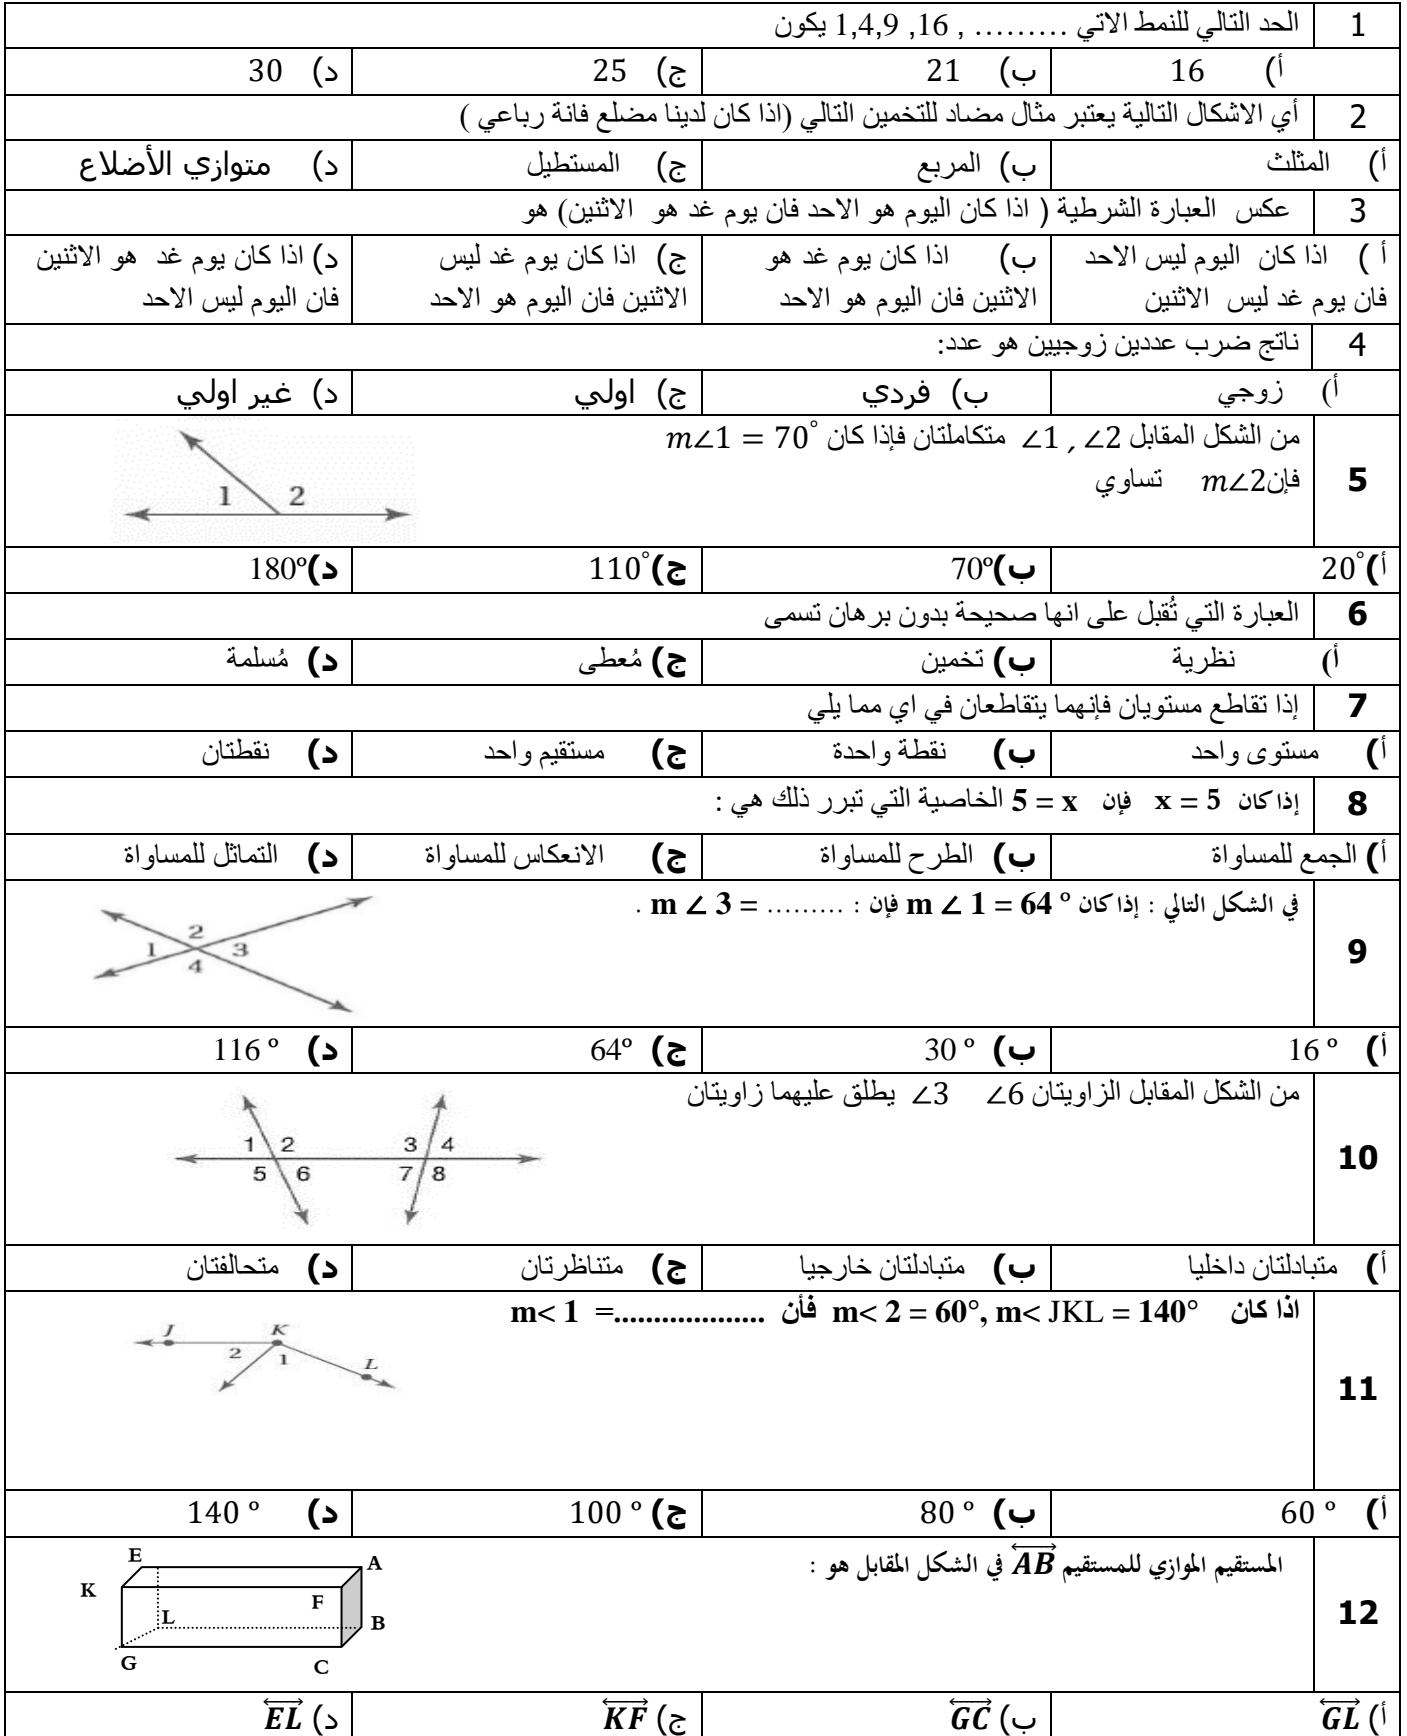 1 الحد التالي للنمط الاتي ......... , 16, 1,4,9 يكون
أ) 16 ب) 21 ج) 25 د) 30
2 أي الاشكال التالية يعتبر مثال مضاد للتخمين التالي (اذا كان لدينا مضلع فانة رباعي )
أ) المثلث ب) المربع ج) المستطيل د) متوازي الأضلاع
3 عكس العبارة الشرطية ( اذا كان اليوم هو الاحد فان يوم غد هو الاثنين) هو
أ ) اذا كان اليوم ليس الاحد
فان يوم غد ليس الاثنين
ب) اذا كان يوم غد هو
الاثنين فان اليوم هو الاحد
ج) اذا كان يوم غد ليس
الاثنين فان اليوم هو الاحد
د) اذا كان يوم غد هو الاثنين
فان اليوم ليس الاحد
4 ناتج ضرب عددين زوجيين هو عدد:
أ) زوجي ب) فردي ج) اولي د) غير اولي
5 من الشكل المقابل ∠1 , ∠2 متكاملتان فإذا كان m∠1 = 70°
فإن m∠2 تساوي
1 2
أ) 20° ب) 70° ج) 110° د) 180°
6 العبارة التي تُقبل على انها صحيحة بدون برهان تسمى
أ) نظرية ب) تخمين ج) مُعطى د) مُسلمة
7 إذا تقاطع مستويان فإنهما يتقاطعان في اي مما يلي
أ) مستوى واحد ب) نقطة واحدة ج) مستقيم واحد د) نقطتان
8 إذا كان x = 5 فإن 5 = x الخاصية التي تبرر ذلك هي :
أ) الجمع للمساواة ب) الطرح للمساواة ج) الانعكاس للمساواة د) التماثل للمساواة
9 في الشكل التالي : إذا كان m ∠ 1 = 64 º فإن : ......... = m ∠ 3 .
2
1 3
4
أ) 16 º ب) 30 º ج) 64º د) 116 º
10 من الشكل المقابل الزاويتان ∠6 ∠3 يطلق عليهما زاويتان
1 2 3 4
5 6 7 8
أ) متبادلتان داخليا ب) متبادلتان خارجيا ج) متناظرتان د) متحالفتان
11 اذا كان m< 2 = 60°, m< JKL = 140° فأن m< 1 =...................
J K
2 1 L
أ) 60 º ب) 80 º ج) 100 º د) 140 º
12 المستقيم الموازي للمستقيم AB في الشكل المقابل هو :
E A
K F
L B
G C
أ) GL ب) GC ج) KF د) EL